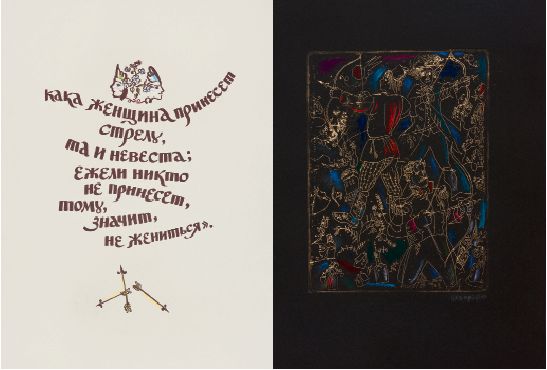 кака женщина принесет
стрелу,
та и невеста;
ежели никто
не принесет,
тому,
значит,
не жениться».